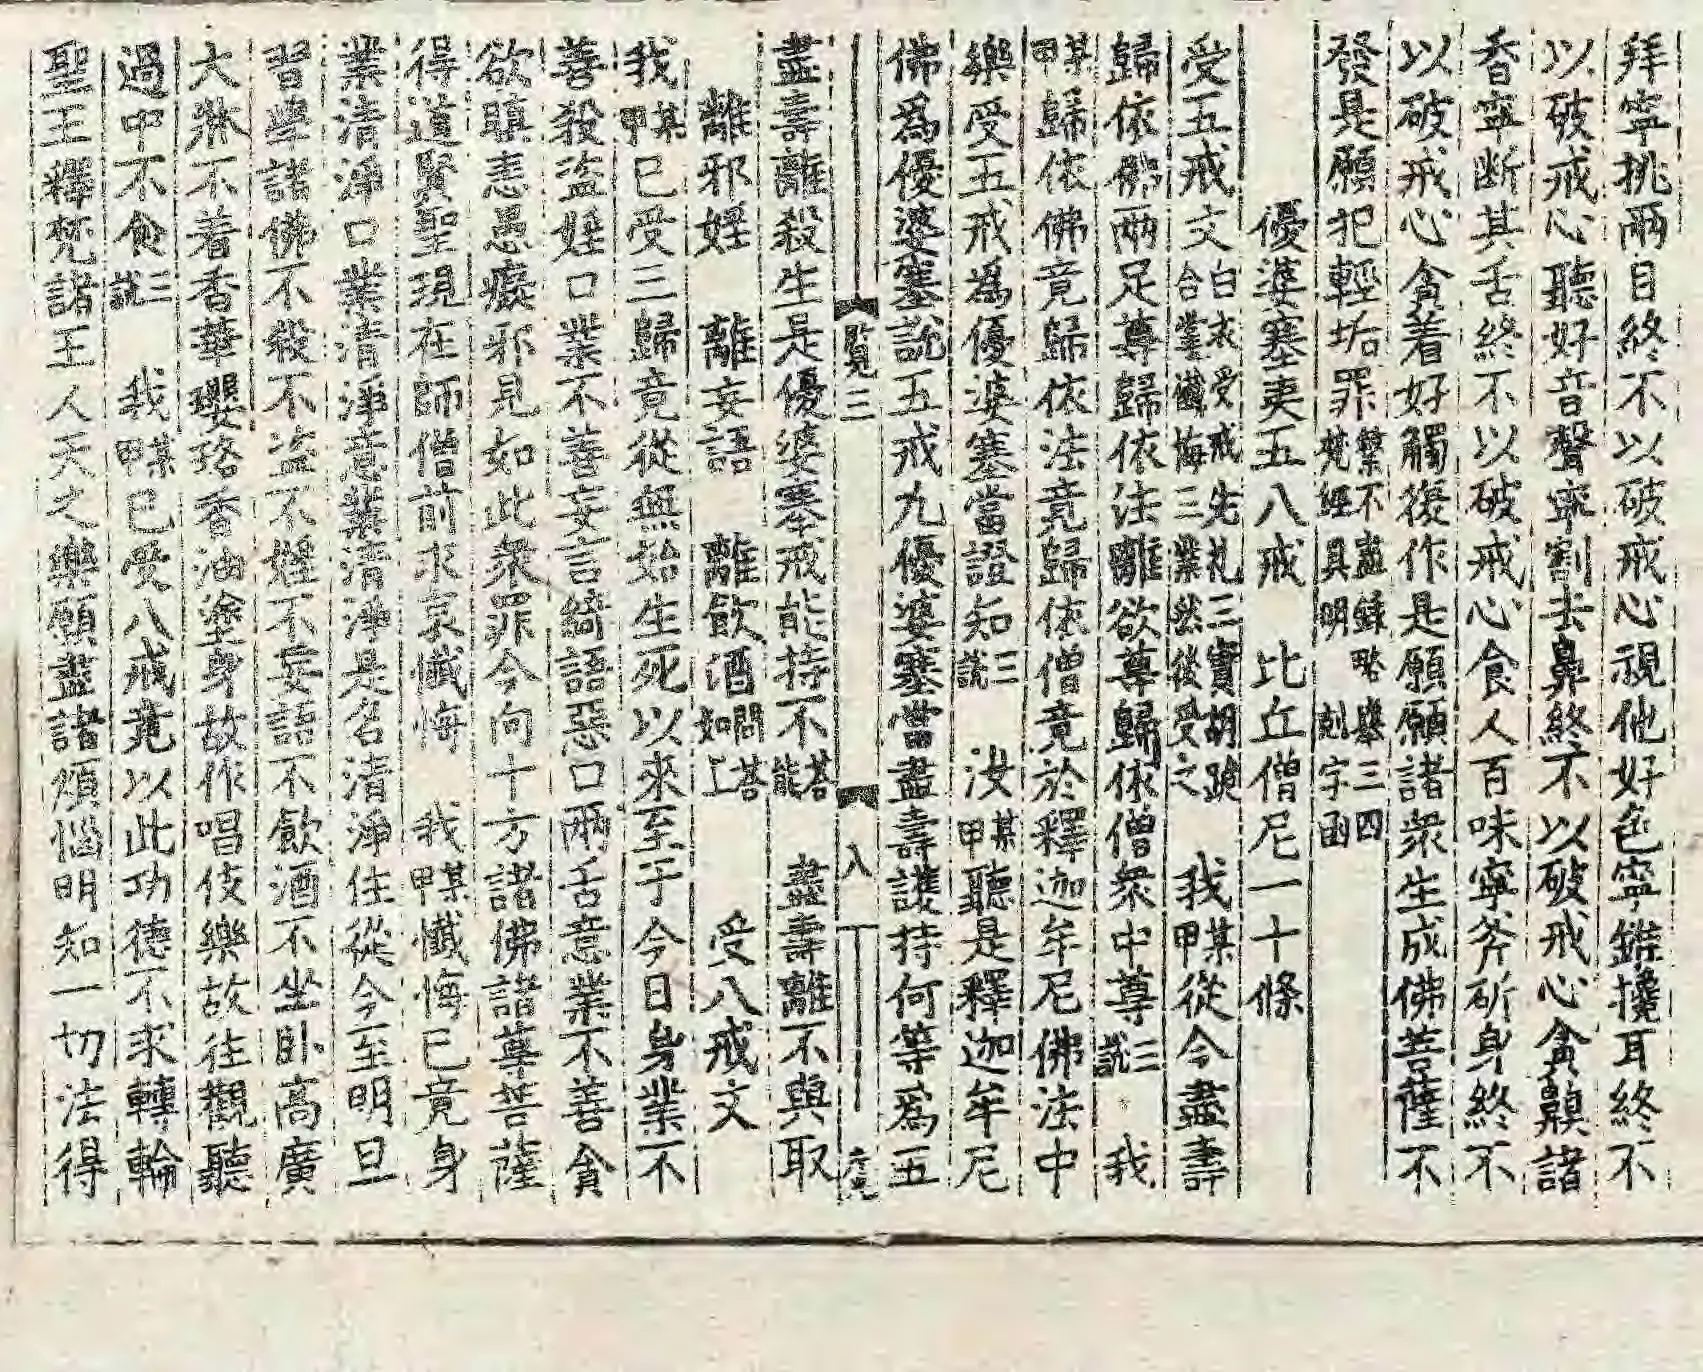 拜寧挑兩目終不以破戒心視他好色寧錐攙耳終不
以破戒心聽好音聲寧割去鼻終不以破戒心貪齅諸
香寧断其舌終不以破戒心食人百味寧斧斫身終不
以破戒心貪着好觸復作是願願諸衆生成佛菩薩不
發是願犯輕垢罪繁不盡錄略舉三四梵經具明剋字函
優婆塞夷五八戒 比丘僧尼一十條
受五戒文白衣受戒先礼三寶胡跪合掌懺悔三業然後受之 我某甲從今盡壽
歸依佛兩足尊歸依法離欲尊歸依僧衆中尊三說 我
某甲歸依佛竟歸依法竟歸依僧竟於釋迦牟尼佛法中
樂受五戒為優婆塞當證知三說 汝某甲聽是釋迦牟尼
佛為優婆塞說五戒九優婆塞當盡壽護持何等為五
覧三 八
盡壽離殺生是優婆塞戒能持不荅能 盡壽離不與取
離邪婬 離妄語 離飲酒問荅如上 受八戒文
我某甲已受三歸竟從無始生死以來至于今日身業不
善殺盗婬口業不善妄言綺語惡口兩舌意業不善貪
欲瞋恚愚癡邪見如此衆罪今向十方諸佛諸尊菩薩
得道賢聖現在師僧前求哀懺悔 我某甲懺悔已竟身
業清淨口業清淨意業清淨是名清淨住從今至明旦
習學諸佛不殺不盗不婬不妄語不飲酒不坐卧高廣
大牀不着香華瓔珞香油塗身故作唱伎樂故往觀聽
過中不食三說 我某甲已受八戒竟以此功德不求轉輪
聖王釋梵諸王人天之樂願盡諸煩惱明知一切法得